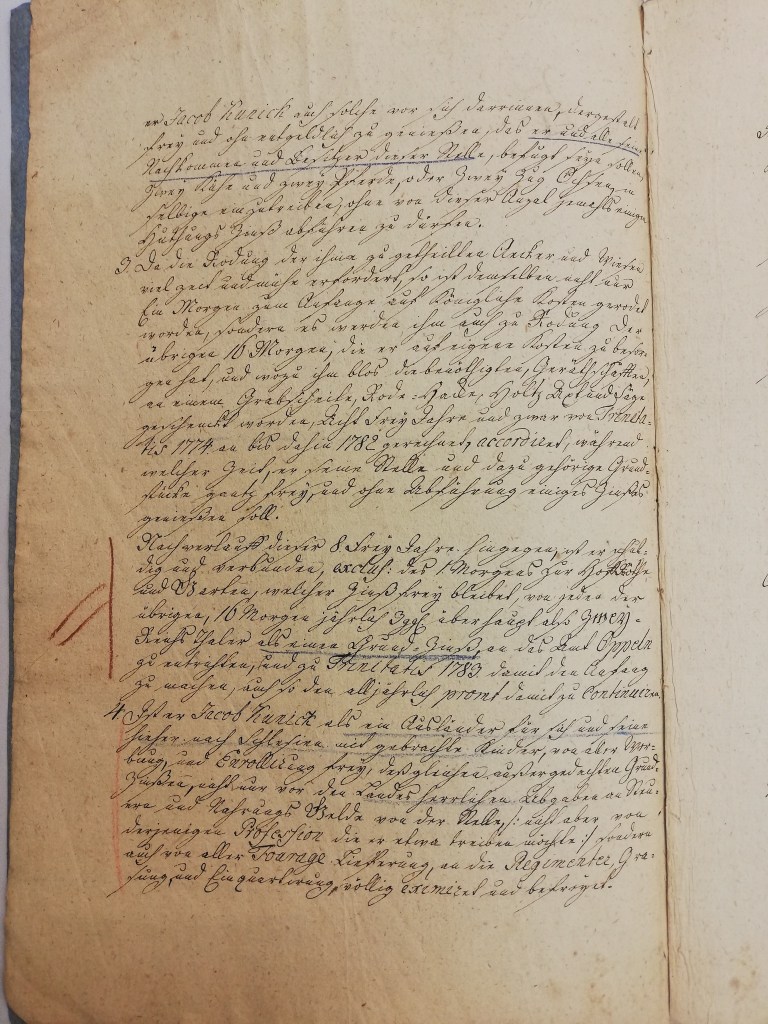 er Jacob Kunick auch solche vor sich darinnen, dergestalt
frey und ohn entgeldlich zu genießen, das er und alle seine
Nachkommen und Besitzer dieser Stelle, befugt seyn sollen,
Zwey Kühe und zwey Pferde, oder Zwey Zug Ochsen, in
selbige einzutreiben, ohne von dieser Anzal jemahls einigen
Huthungs Zinß abführen zu dürfen.
3. Da die Rodung der ihme zu getheilten Aecker und Wiesen
viel Zeit und mühe erfordert, so ist demselben nicht nur
Ein Morgen zum Anfange auf Königliche Kosten gerodet
worden, sondern es werden ihm auch zu Rodung der
übrigen 16 Morgen, die er auf eigene Kosten zu besor-
gen hat, und wozu ihm blos die benöthigten Geräthschafften,
an einem Grabscheite, Rode-Hacke, Holtz Axt und Säge
geschenckt worden, Acht Frey Jahre und zwar von Trinita-
tis 1774 an bis dahin 1782 gerechnet, accordiret, während
welcher Zeit, er seine Stelle und dazu gehörige Grund-
stücke gantz frey, und ohne Abführung einiges Zinßes
genießen soll.
Nach verlauff dieser 8 Frey Jahre hingegen, ist er schul-
dig und verbunden, exclus: des 1 Morgens zur Hofstäthe
und Garten, welcher Zinß frey bleibet, von jeden der
übrigen, 16 Morgen jährlich 3 ggl. überhaupt also Zwey-
Reichs Thaler als einen Grund-Zinß, an das Amt Oppeln
zu entrichten, und zu Trinitatis 1783 damit den Anfang
zu machen, auch so den alljährlich promt damit zu Continuiren.
4. Ist er Jacob Kunick als ein Ausländer für sich und seine
hieher nach Schlesien mit gebrachte Kinder, von aller Wer-
bung, und Enrollirung frey, deßgleichen außer gedachten Grund-
Zinßen, nicht nur vor den Landesherrlichen Abgaben an Steu-
ern und Nahrungs Gelde von der Stelle, /: nicht aber von
derjenigen Profession die er etwa treiben möchte :/ sondern
auch von aller Fourage Lieferung, an die Regimenter, Gra-
sung, und Einquartirung, völlig eximiret und befreyet.